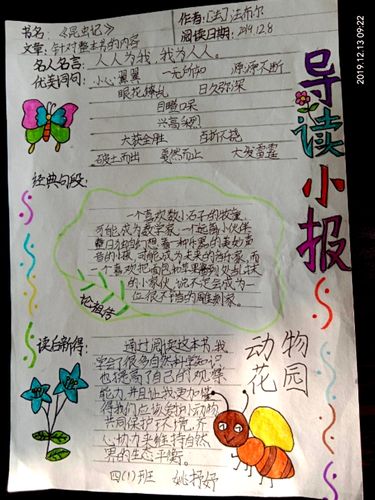 书名:《昆虫记》
作者:[法]法布尔
文章:针对整本书的内容
阅读日期:2019.12.8
名人名言:人人为我,我为人人。
优美词句:小心翼翼 一无所知 源源不断
眼花缭乱 日久弥深
目瞪口呆
兴高采烈
大获全胜 百折不挠
破土而出 戛然而止 大发雷霆
导读小报
经典句段:
一个喜欢数小石子的牧童,
可能成为数学家,一
音的孩,可能成为未来的
一个喜欢把
的小家伙,说不定会成为一
位很不错的雕刻家。
读后新得:
通过阅读这本书,我
学会了很多自然科学知识
也提高了自己的观察
能力,并且让我更加觉
得我们应该要和动物
共同保护环境,齐
心协力来维持自然
界的生态平衡。
动物
花园
四(1)班 姚抒妤
2019.12.13 09:22